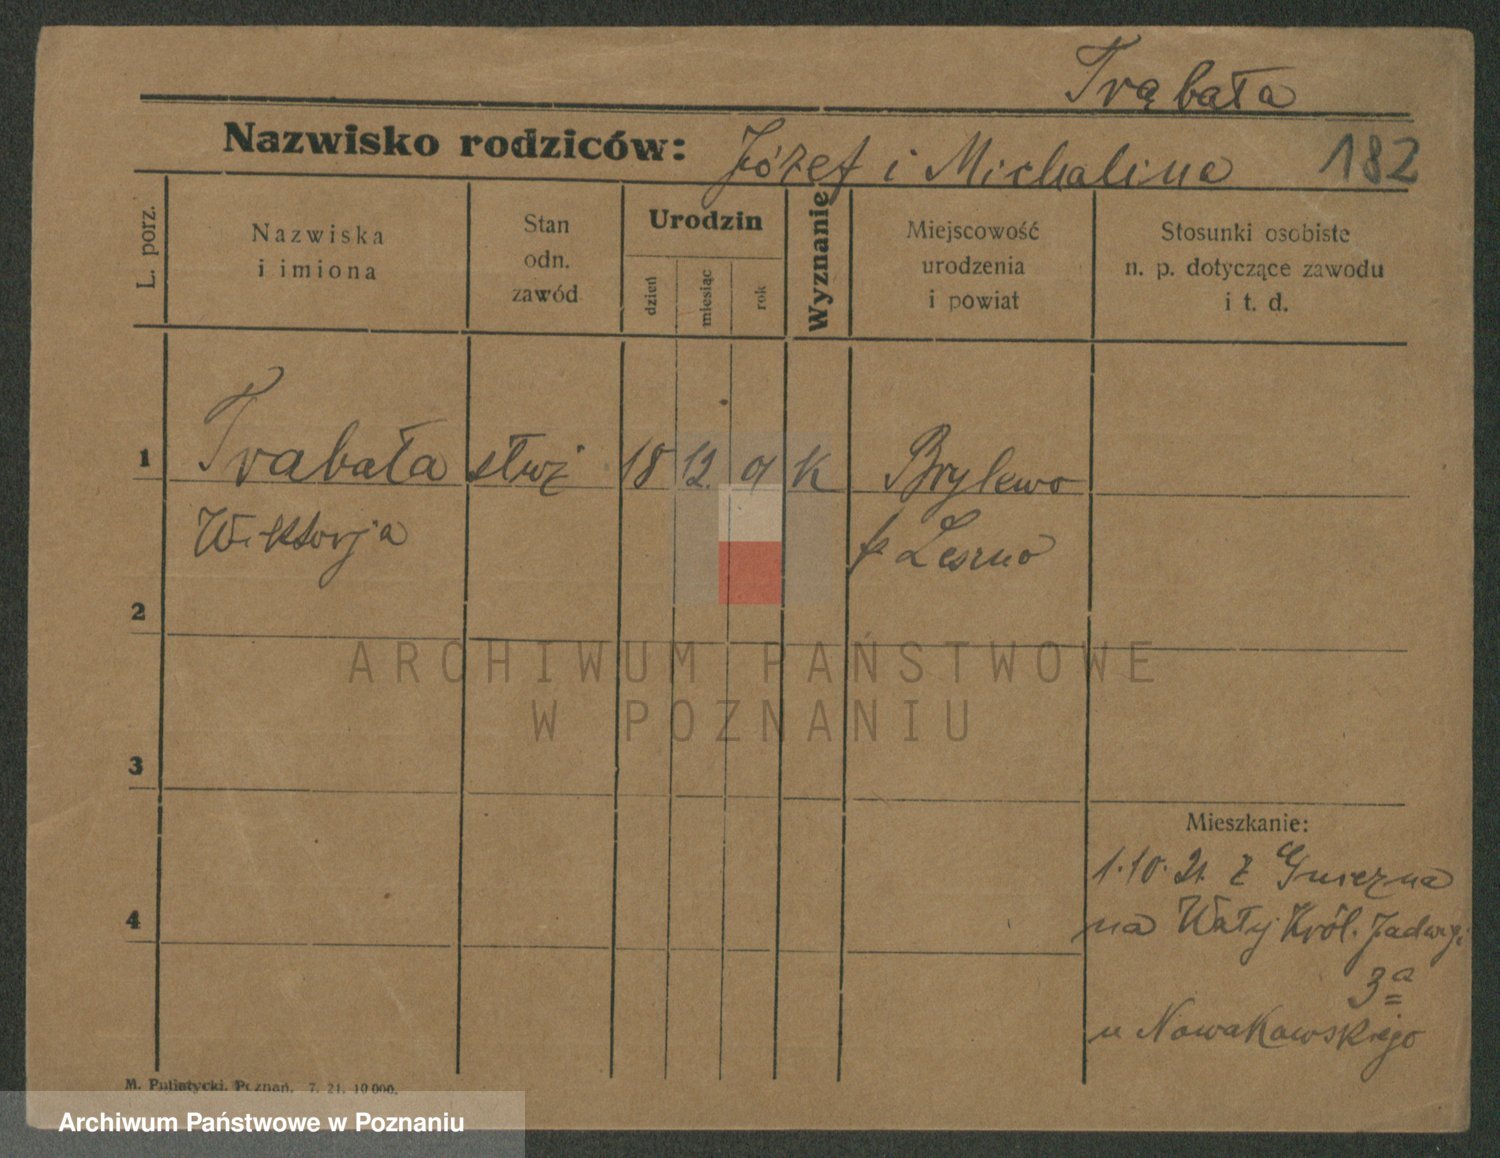 Trąbała
Nazwisko rodziców: Józef i Michalina 182
L. porz.
Nazwiska
i imiona
Stan
odn.
zawód
Urodzin
dzień
miesiąc
rok
Wyznanie
Miejscowość
urodzenia
i powiat
Stosunki osobiste
n. p. dotyczące zawodu
i t. d.
1 Trabała służ 18 12. 01 K Brylewo
Wiktorja p Leszno
2
3
4
Mieszkanie:
1.10.21. z Gniezna
na Wały Król. Jadwigi
3a
u Nowakowskiego
M. Putiatycki, Poznań. 7. 21. 10 000.
ARCHIWUM PAŃSTWOWE
W POZNANIU
Archiwum Państwowe w Poznaniu